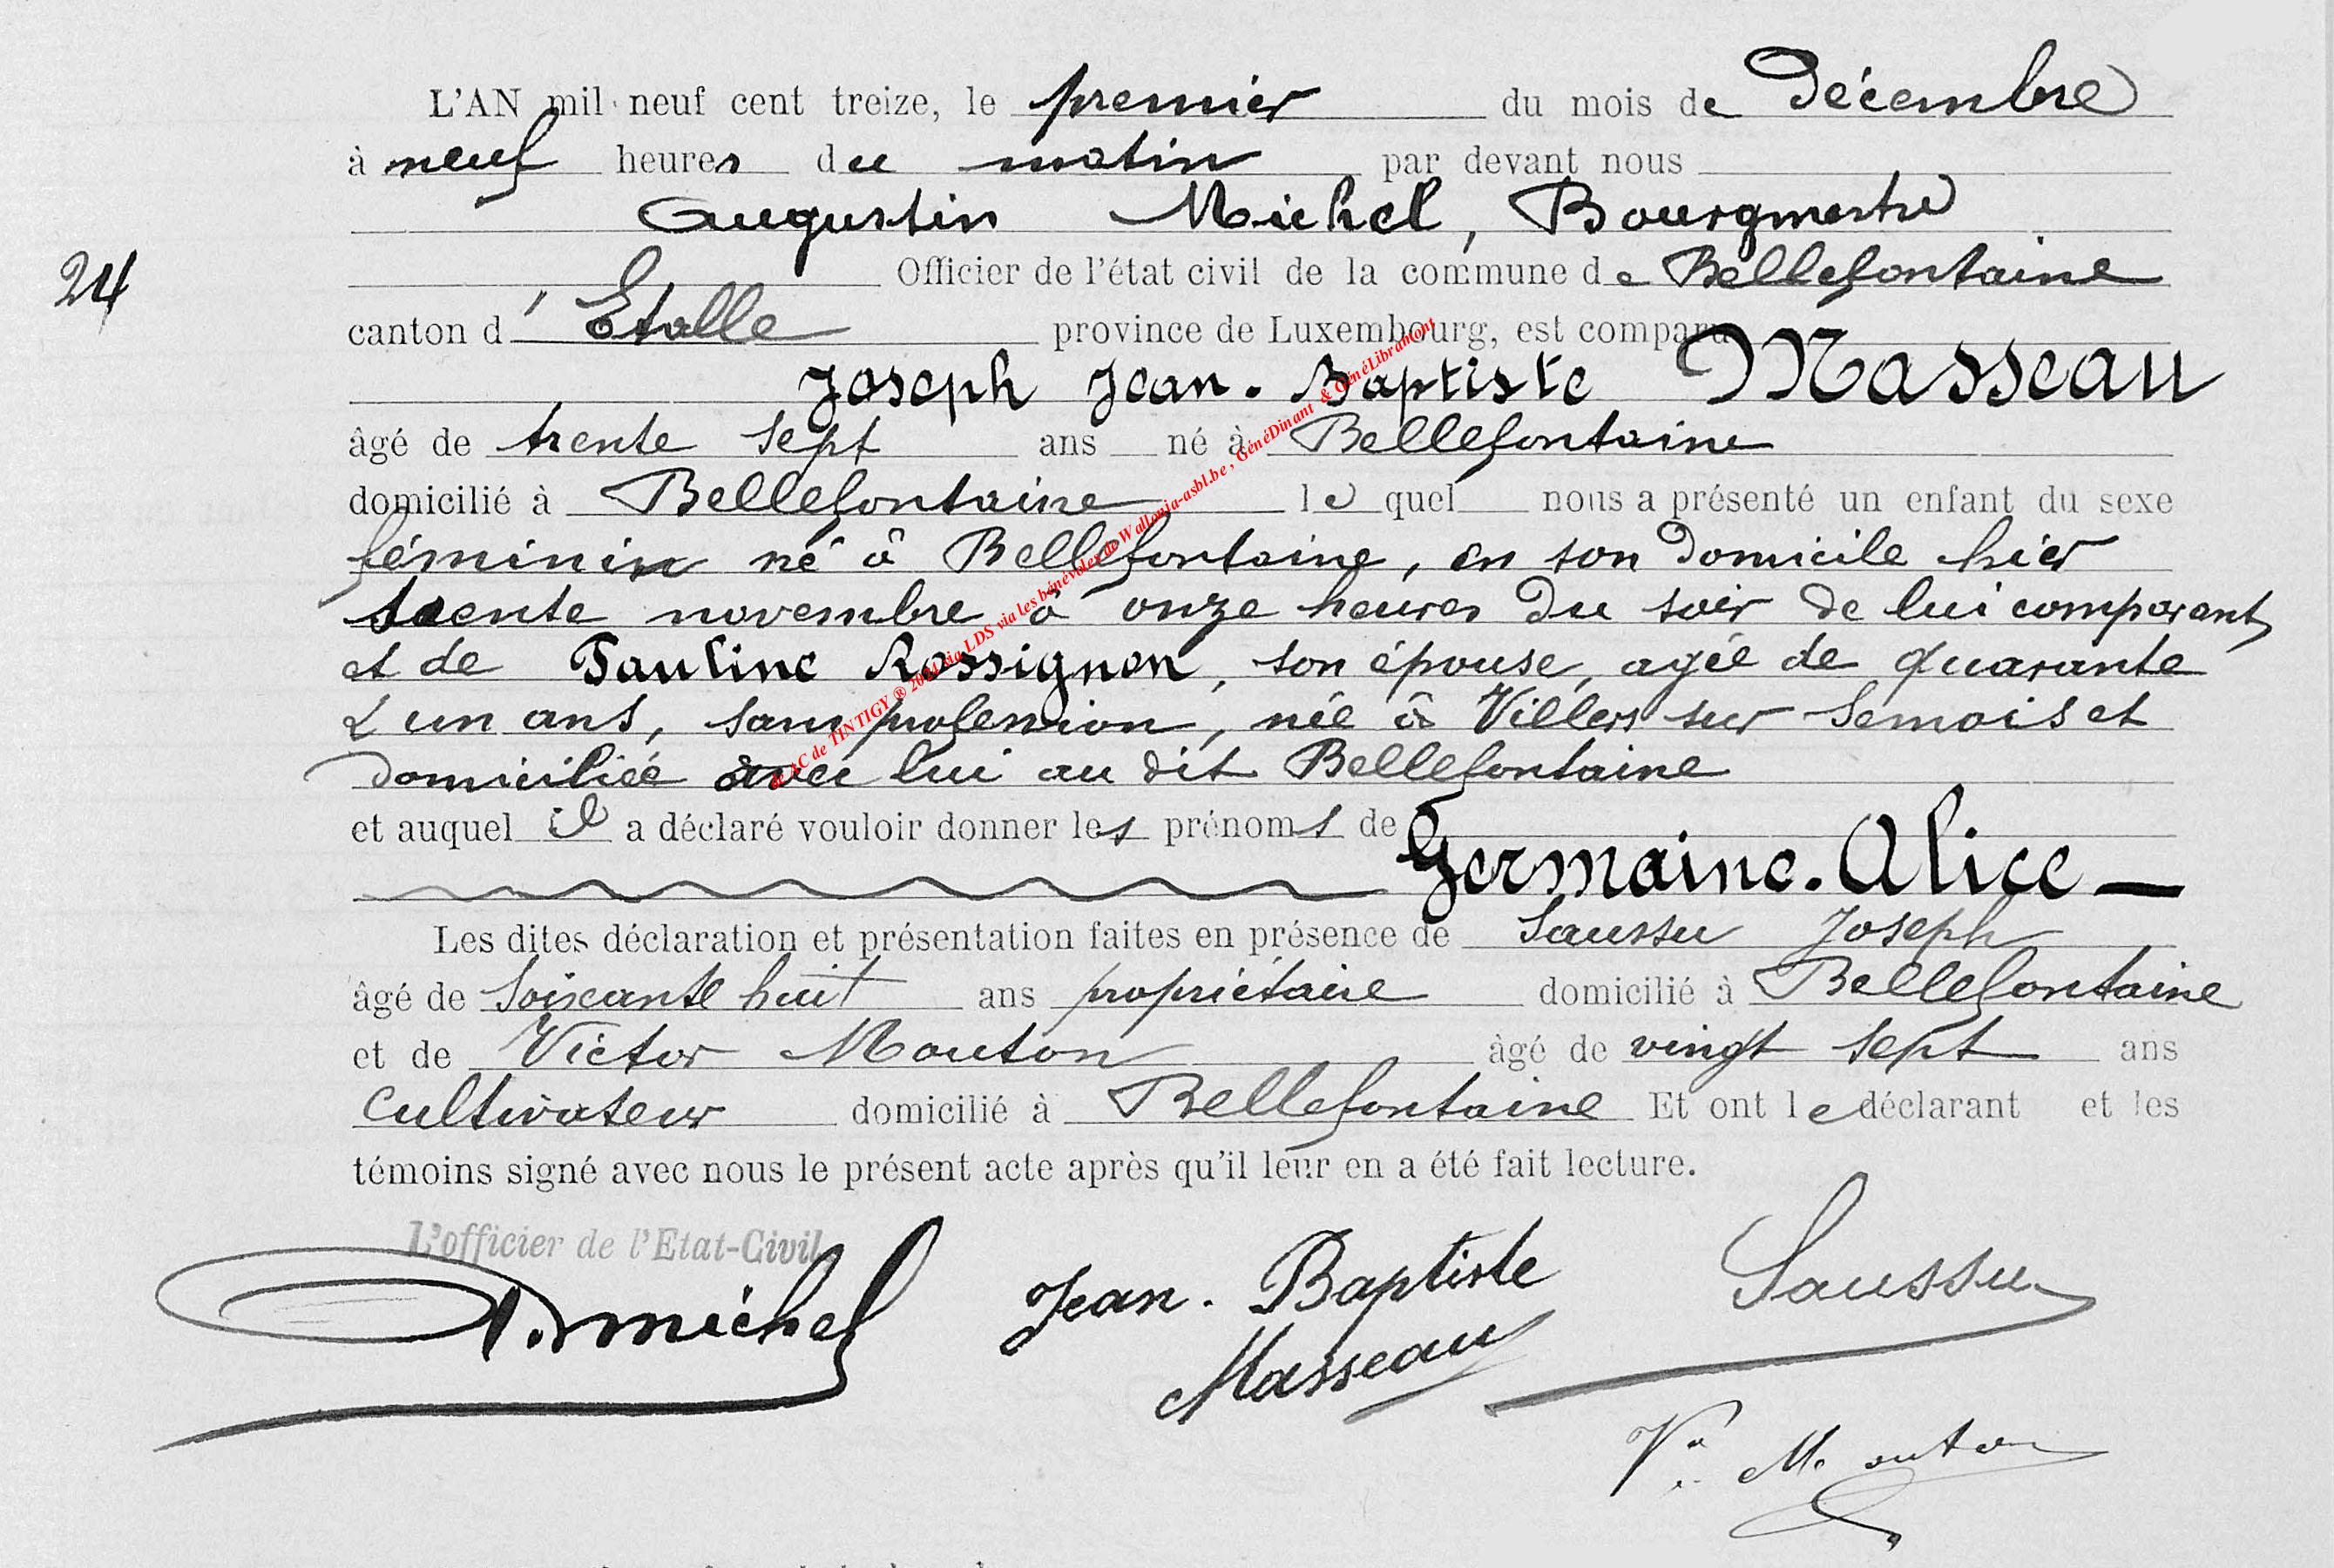 L'AN mil neuf cent treize, le premier du mois de Décembre
à neuf heures du matin par devant nous
Augustin Michel, Bourgmestre
24
Officier de l'état civil de la commune de Bellefontaine
canton d'Etalle province de Luxembourg, est comparu
Joseph Jean-Baptiste Masseau
âgé de trente sept ans né à Bellefontaine
domicilié à Bellefontaine lequel nous a présenté un enfant du sexe
féminin né à Bellefontaine, en son domicile hier
trente novembre à onze heures du soir de lui comparant
et de Pauline Rossignon, son épouse, agée de quarante
& un ans, sans profession, née à Villers sur Semois et
domiciliée avec lui au dit Bellefontaine
et auquel il a déclaré vouloir donner les prénoms de
Germaine-Alice —
Les dites déclaration et présentation faites en présence de Saussu Joseph
âgé de soixante huit ans propriétaire domicilié à Bellefontaine
et de Victor Mouton âgé de vingt sept ans
cultivateur domicilié à Bellefontaine Et ont le déclarant et les
témoins signé avec nous le présent acte après qu'il leur en a été fait lecture.
L'officier de l'Etat-Civil
A. Michel
Jean-Baptiste
Masseau
Saussu
Vr Mouton
AC de TINTIGY ® 2024 via LDS via les bénévoles de Wallonia-asbl.be, GénéDinant & GénéLibramont